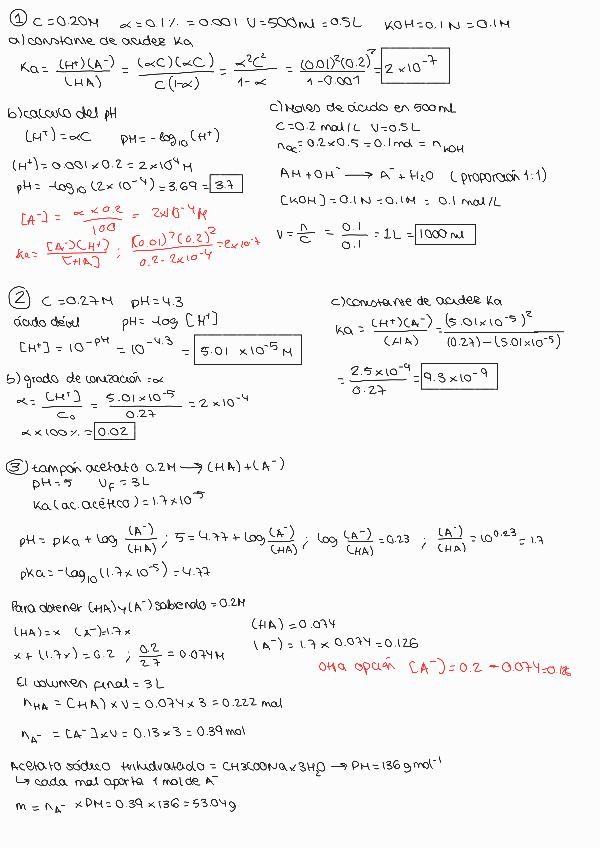 ① C=0.20M α=0.1% = 0.001 V=500ml = 0.5L KOH=0.1N=0.1M
a) constante de acidez Ka
Ka = (H+)(A-)/(HA) = (αC)(αC)/C(1-α) = α²C²/1-α = (0.01)²(0.2)²/1-0.001 = 2×10⁻⁷
b) calculo del pH
[H+]=αC pH=-log₁₀(H+)
(H+)=0.001×0.2=2×10⁴M
pH=-log₁₀(2×10⁻⁴)=3.69=3.7
[A-] = α×0.2/100 = 2×10⁻⁴M
Ka = [A-](H+]/[HA] ; (0.01)²(0.2)²/0.2-2×10⁻⁴ = 2×10⁻⁷
c) Moles de ácido en 500ml
C=0.2mol/L V=0.5L
nac=0.2×0.5=0.1mol = nKOH
AH+OH⁻ → A⁻+H₂O (proporción 1:1)
[KOH]=0.1N=0.1M = 0.1mol/L
V=n/C = 0.1/0.1 = 1L = 1000ml
② C=0.27M pH=4.3
ácido débil pH=-log[H+]
[H+]=10⁻ᵖᴴ=10⁻⁴·³= 5.01 ×10⁻⁵M
b) grado de ionización=α
α=[H+]/C₀ = 5.01×10⁻⁵/0.27 = 2×10⁻⁴
α×100%=0.02
c) constante de acidez Ka
Ka = (H+)(A-)/(HA) = (5.01×10⁻⁵)²/(0.27)-(5.01×10⁻⁵)
= 2.5×10⁻⁹/0.27 = 9.3×10⁻⁹
③ tampón acetato 0.2M → (HA)+(A-)
pH=5 VF=3L
Ka (ac.acético)=1.7×10⁻⁵
pH= pKa + log (A-)/(HA) ; 5=4.77+log (A-)/(HA) ; log (A-)/(HA) =0.23 ; (A-)/(HA) =10⁰·²³=1.7
pKa=-log₁₀(1.7×10⁻⁵)=4.77
Para obtener (HA) y (A-) sabiendo=0.2M
(HA)=x (A-)=1.7x
x+(1.7x)=0.2 ; 0.2/2.7 = 0.074M
(HA)=0.074
(A-)=1.7×0.074=0.126
otra opción [A-]=0.2-0.074=0.126
El volumen final=3L
nHA = [HA]×V=0.074×3=0.222 mol
nA- =[A-]×V=0.13×3=0.39mol
Acetato sódico trihidratado = CH3COONa×3H₂O → PM=136gmol⁻¹
↳ cada mol aporta 1 mol de A⁻
m = nA- ×PM=0.39×136=53.04g